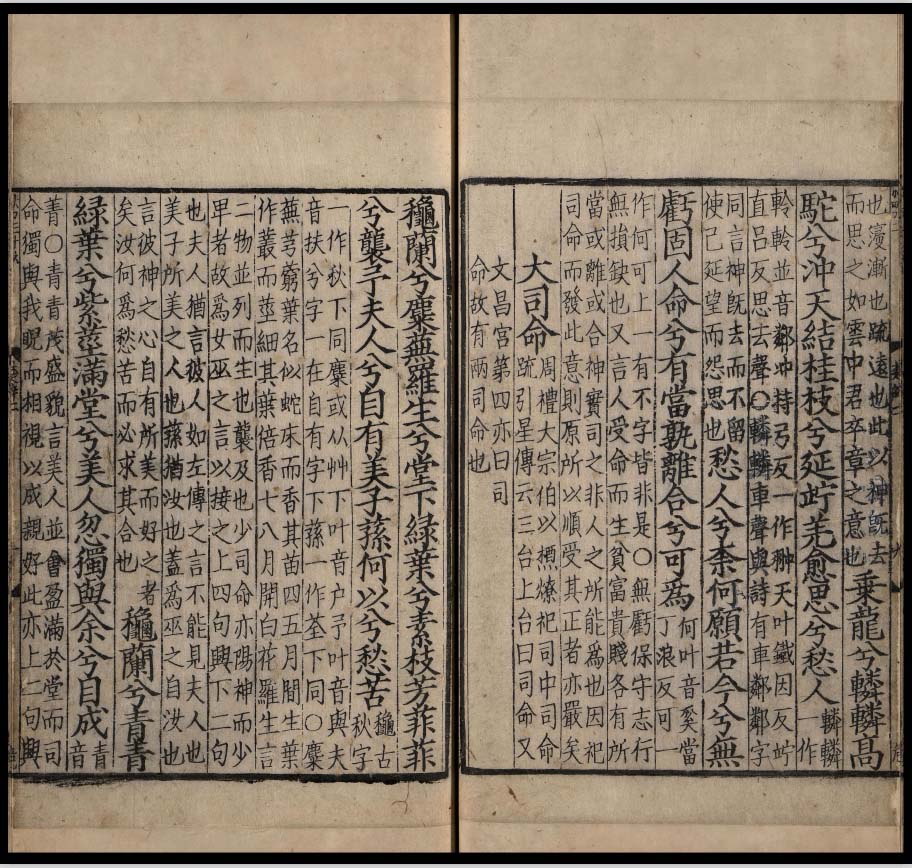 也𣸣漸也疏遠也此以神旣去
而思之如雲中君卒章之意也
乗龍兮轔轔髙
駝兮沖天結桂枝兮延竚羌愈思兮愁人
轔轔
一作
軨軨並音鄰冲持弓反一作翀天叶鐵因反竚
直吕反思去聲〇轔轔車聲與詩有車鄰鄰字
同言神旣去而不留
使已延望而怨思也
愁人兮柰何願若今兮無
虧固人命兮有當孰離合兮可爲
何叶音奚當
丁浪反可一
作何可上一有不字皆非是〇無虧保守志行
無損缺也又言人受命而生貧富貴賤各有所
當或離或合神實司之非人之所能爲也因祀
司命而發此意則原所以順受其正者亦嚴矣
大司命
周禮大宗伯以槱燎祀司中司命
疏引星傳云三台上台曰司命又
文昌宫第四亦曰司
命故有兩司命也
穐蘭兮麋蕪羅生兮堂下緑葉兮素枝芳菲菲
兮襲予夫人兮自有美子蓀何以兮愁苦
穐古
秋字
一作秋下同麋或从艸下叶音户予叶音與夫
音扶兮字一在自有字下蓀一作荃下同〇麋
蕪芎藭葉名似蛇床而香其苗四五月間生葉
作叢而莖細其葉倍香七八月開白花羅生言
二物並列而生也襲及也少司命亦陽神而少
卑者故爲女巫之言以接之上四句興下二句
也夫人猶言彼人如左傳之言不能見夫人也
美子所美之人也蓀猶汝也蓋爲巫之自汝也
言彼神之心自有所美而好之者
矣汝何爲愁苦而必求其合也
穐蘭兮青青
緑葉兮紫莖滿堂兮美人忽獨與余兮目成
青
音
菁〇青青茂盛貌言美人並會盈滿於堂而司
命獨與我睨而相視以成親好此亦上二句興